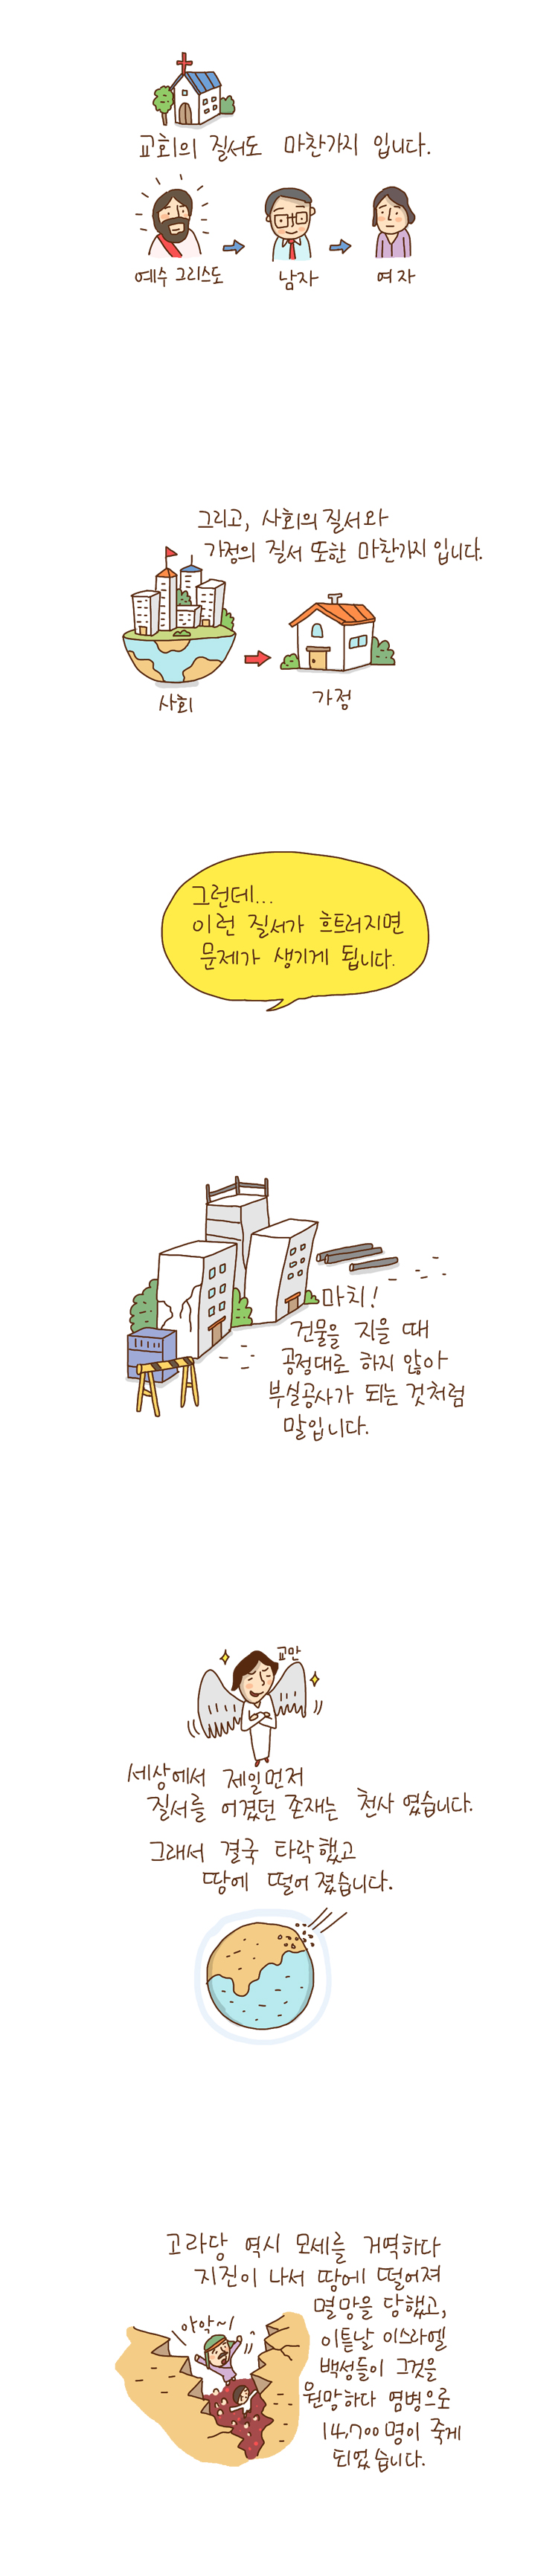 교회의 질서도 마찬가지 입니다.
예수 그리스도
남자
여자
그리고, 사회의 질서와
가정의 질서 또한 마찬가지 입니다.
사회
가정
그런데...
이런 질서가 흐트러지면
문제가 생기게 됩니다.
마치!
건물을 지을 때
공정대로 하지 않아
부실공사가 되는 것처럼
말입니다.
교만
세상에서 제일먼저
질서를 어겼던 존재는 천사 였습니다.
그래서 결국 타락했고
땅에 떨어 졌습니다.
고라당 역시 모세를 거역하다
지진이 나서 땅에 떨어져
멸망을 당했고,
아악~!
이튿날 이스라엘
백성들이 그것을
원망하다 염병으로
14,700명이 죽게
되었습니다.